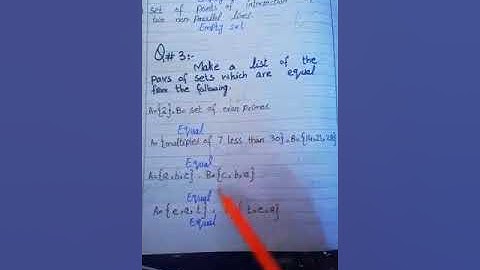 set of points of intersection
two non-parallel lines.
Empty set
Q#3:-
Make a list of the
pairs of sets which are equal
from the following.
A={2}, B= set of even primes
Equal
A={multiples of 7 less than 30}, B={14,21,28}
Equal
A={a,b,c}, B={c,b,a}
Equal
A={e,a,t}, { t,e,a}
Equal